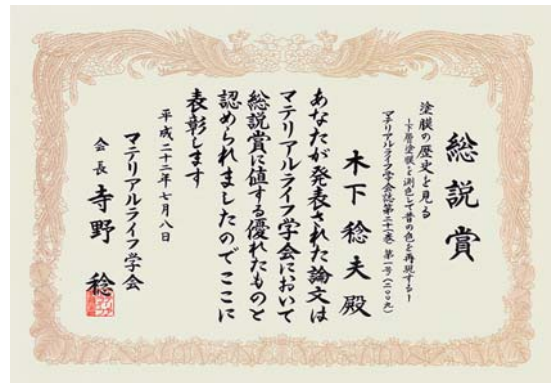 総説賞
塗膜の歴史を見る
-下層塗膜を測色して昔の色を再現する-
マテリアルライフ学会誌第二十一巻 第一号(二〇〇九)
木下 稔夫 殿
あなたが発表された論文は
マテリアルライフ学会において
総説賞に値する優れたものと
認められましたのでここに
表彰します
平成二十二年七月八日
マテリアルライフ学会
会長 寺野 稔